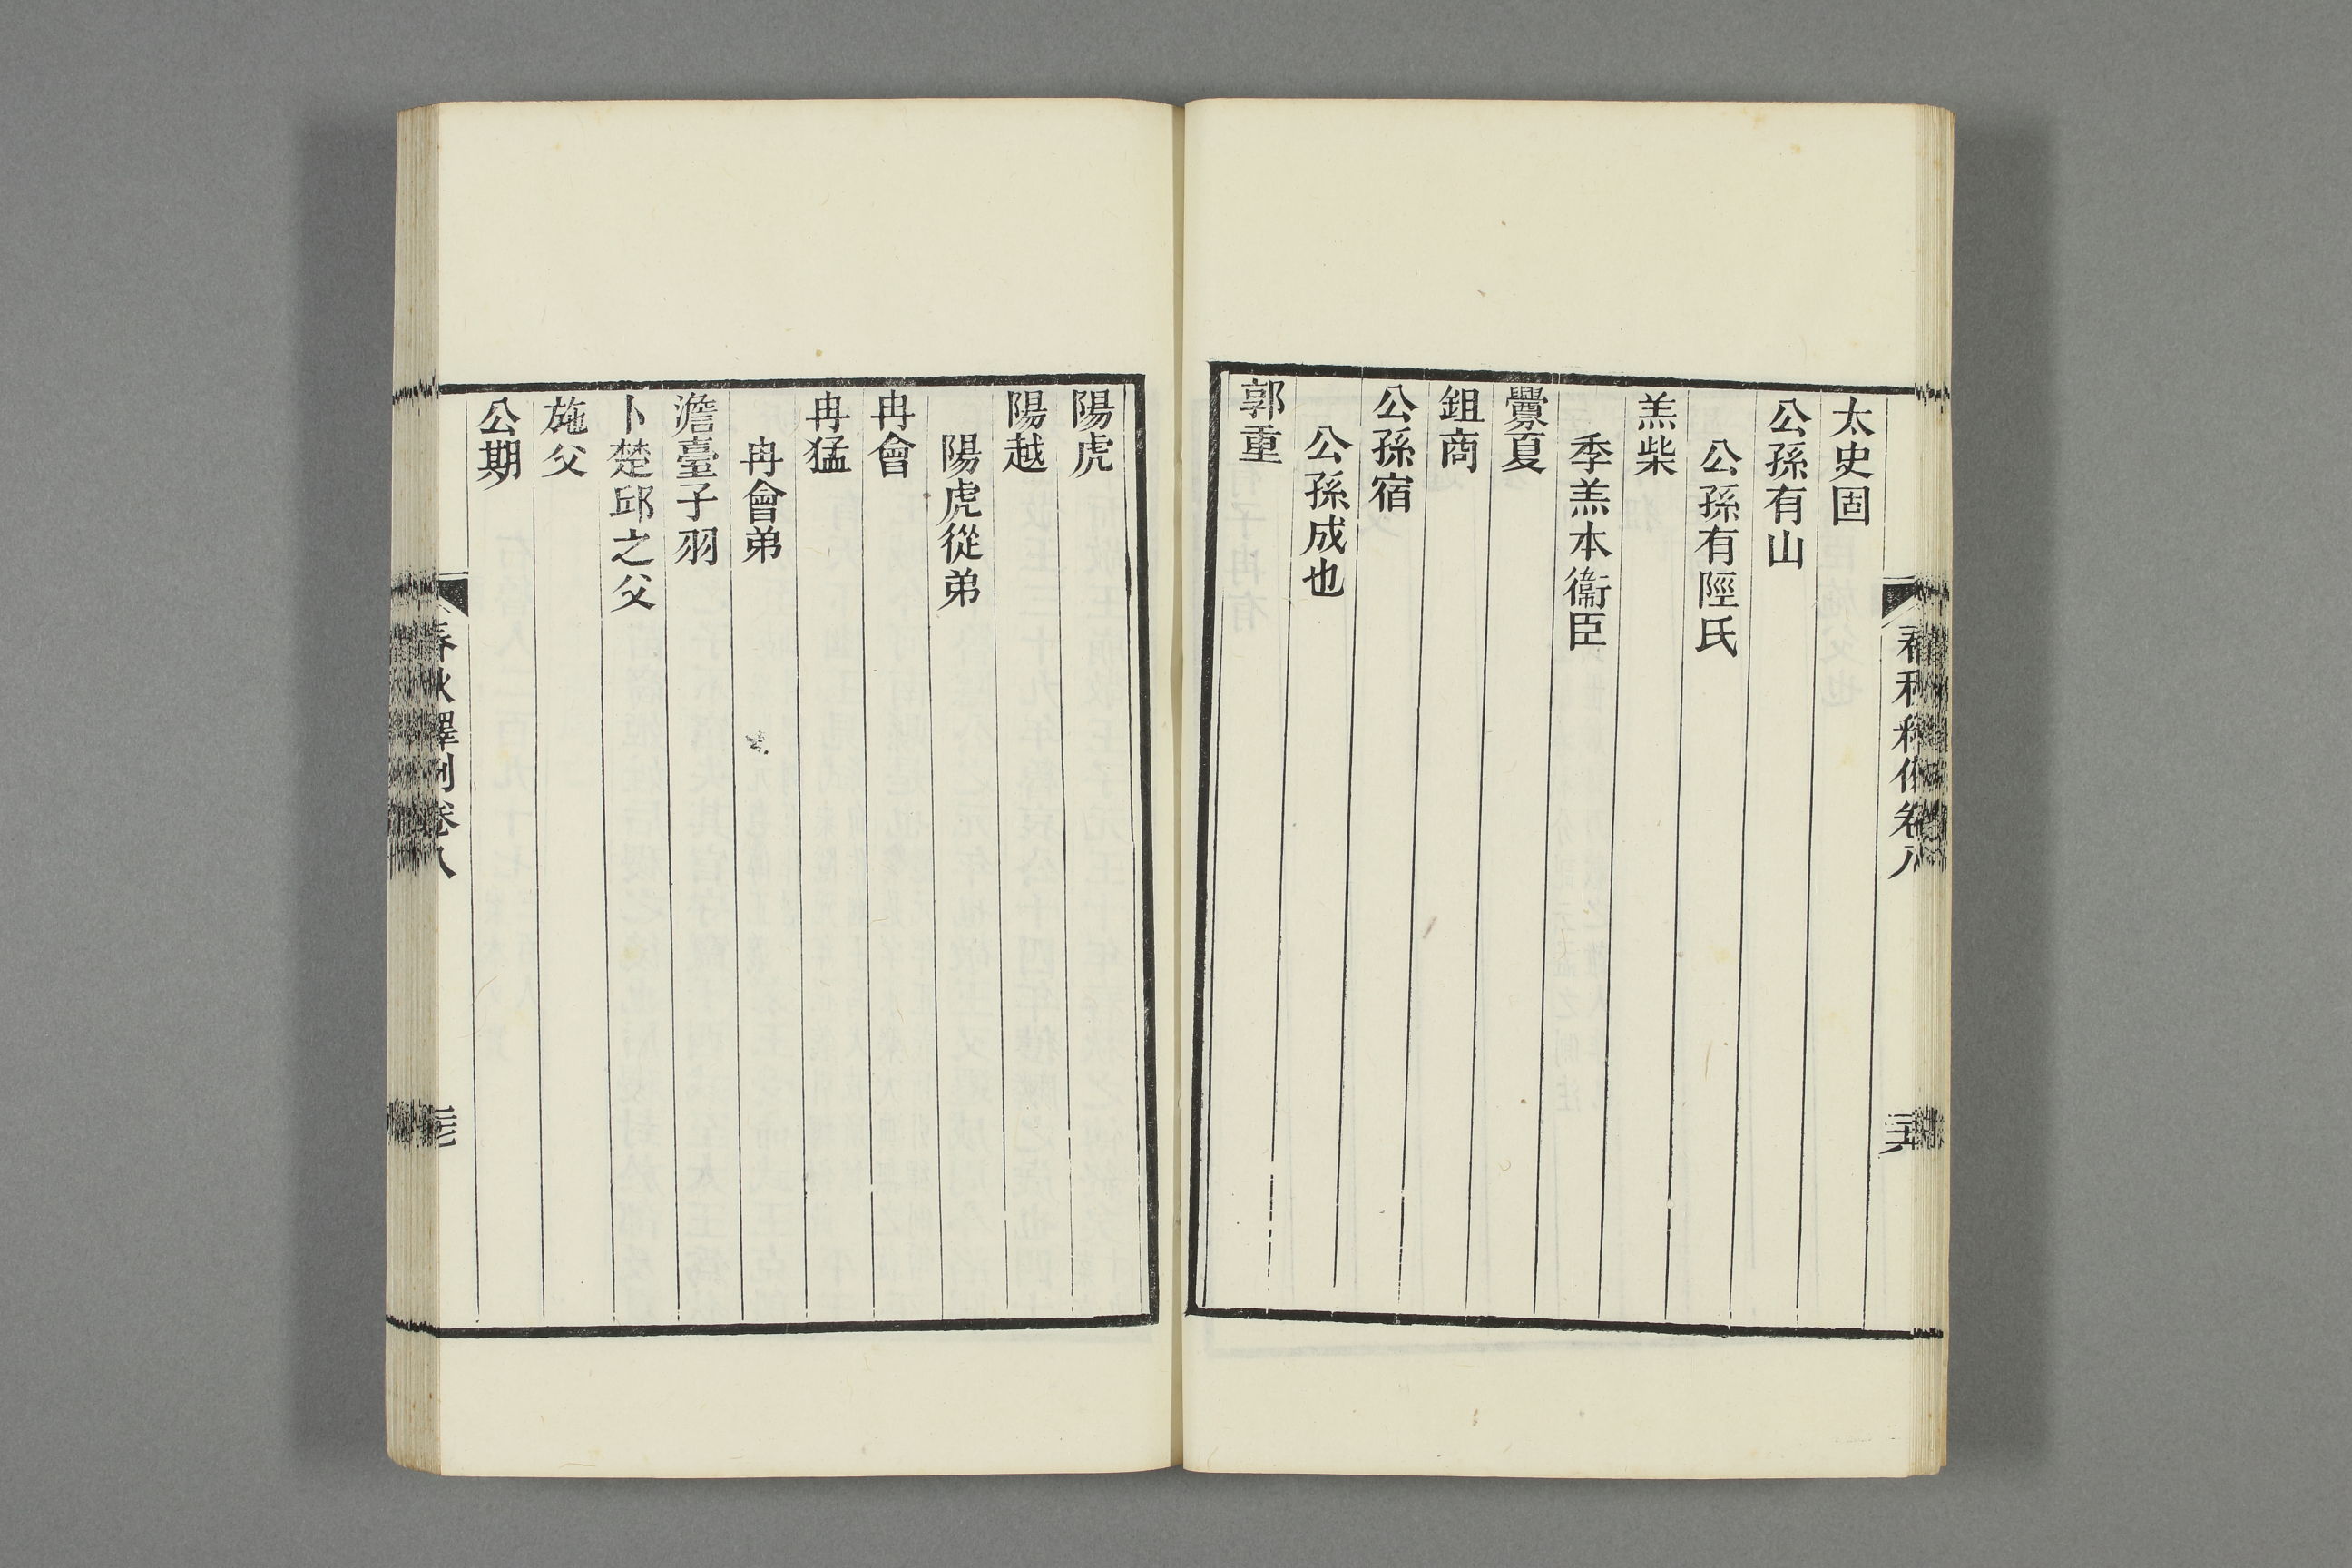 太史固
公孫有山
公孫有陘氏
羔柴
季羔本衞臣
釁夏
鉏商
公孫宿
公孫成也
郭重
陽虎
陽越
陽虎從弟
冉會
冉猛
冉會弟
澹臺子羽
卜楚邱之父
施父
公期
春秋釋例卷八